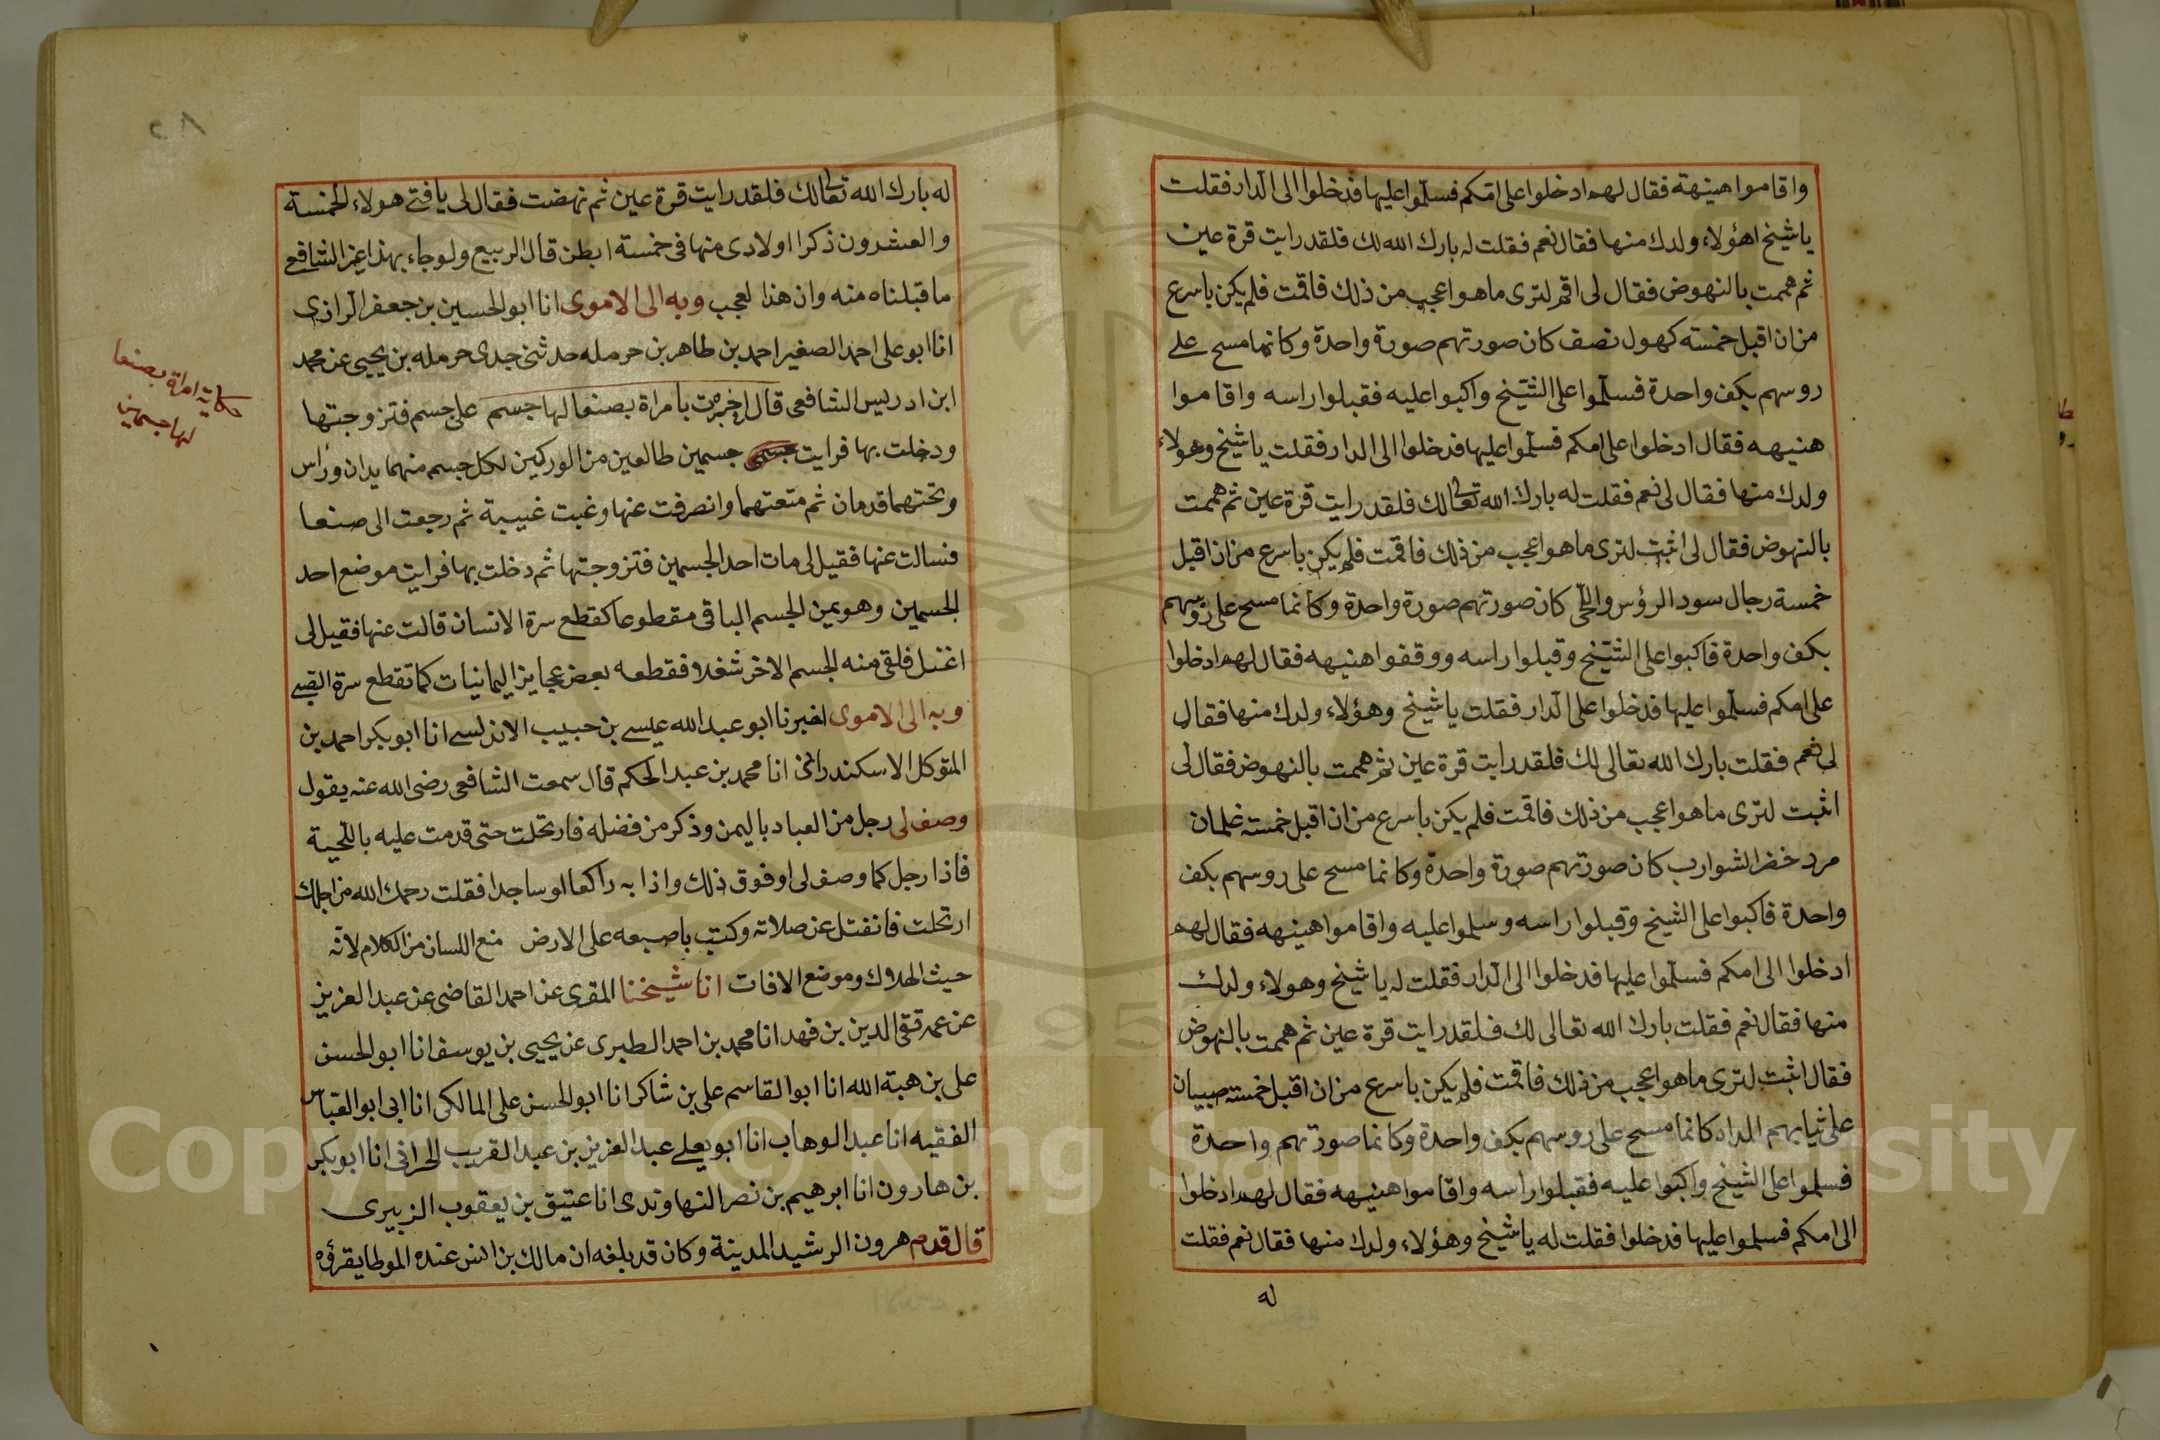 واقاموا هينهة فقال لهم ادخلوا على امكم فسلموا عليها فدخلوا الى الدار فقلت
ياشيخ اهؤلاء ولدك منها فقال نعم فقلت له بارك الله لك فلقد رايت قرة عين
ثم هممت بالنهوض فقال لى اقم لترى ما هو اعجب من ذلك فاقمت فلم يكن باسرع
من ان اقبل خمسته كهول نصف كان صورتهم صورة واحدة وكانما مسح على
روسهم بكف واحدة فسلموا على الشيخ واكبوا عليه فقبلوا راسه واقاموا
هنيهه فقال ادخلوا على امكم فسلموا عليها فدخلوا الى الدار فقلت ياشيخ وهولاء
ولدك منها فقال لى نعم فقلت له بارك الله تعالى لك فلقد رايت قرة عين ثم هممت
بالنهوض فقال لى اثبت لترى ما هو اعجب من ذلك فاقمت فلم يكن باسرع من ان اقبل
خمسة رجال سود الرؤس واللحى كان صورتهم صورة واحدة وكانما مسح على روسهم
بكف واحدة فاكبوا على الشيخ وقبلوا راسه ووقفوا هنيهه فقال لهم ادخلوا
على امكم فسلموا عليها فدخلوا على الدار فقلت ياشيخ وهؤلاء ولدك منها فقال
لى نعم فقلت بارك الله تعالى لك فلقد رايت قرة عين ثم هممت بالنهوض فقال لى
اثبت لترى ما هو اعجب من ذلك فاقمت فلم يكن باسرع من ان اقبل خمسته غلمان
مرد خضر الشوارب كان صورتهم صورة واحدة وكانما مسح على روسهم بكف
واحدة فاكبوا على الشيخ وقبلوا راسه وسلموا عليه واقاموا هينهه فقال لهم
ادخلوا الى امكم فسلموا عليها فدخلوا الى الدار فقلت له ياشيخ وهولاء ولدك
منها فقال نعم فقلت بارك الله تعالى لك فلقد رايت قرة عين ثم هممت بالنهوض
فقال اثبت لترى ما هو اعجب من ذلك فاقمت فلم يكن باسرع من ان اقبل خمسته صبيان
على ثيابهم المداد كانما مسح على روسهم بكف واحدة وكانما صورتهم واحدة
فسلموا على الشيخ واكبوا عليه فقبلوا راسه واقاموا هنيهه فقال لهم ادخلوا
الى امكم فسلموا عليها فدخلوا فقلت له ياشيخ وهؤلاء ولدك منها فقال نعم فقلت
له
٢٨
له بارك الله تعالى لك فلقد رايت قرة عين ثم نهضت فقال لى يافتى هولاء الخمسة
والعشرون ذكرا اولادى منها فى خمسة ابطن قال الربيع ولو جاء بهذا غير الشافعى
ما قبلناه منه وان هذا لعجب وبه الى الاموى انا ابو الحسين بن جعفر الرازى
انا ابو على احمد الصغير احمد بن طاهر بن حرمله حدثنى جدى حرمله بن يحيى عن محمد
ابن ادريس الشافعى قال اخبرت بامراة بصنعا لها جسم على جسم فتزوجتها
ودخلت بها فرايت جسمين طالعين من الوركين لكل جسم منهما يدان وراس
وتحتهما قدمان ثم متعتهما وانصرفت عنها وغبت غيبة ثم رجعت الى صنعا
فسالت عنها فقيل لى مات احد الجسمين فتزوجتها ثم دخلت بها فرايت موضع احد
الجسمين وهو يمن الجسم الباقى مقطوعا كقطع سرة الانسان قالت عنها فقيل لى
فلقى منه الجسم الاخر شغلا فقطعه بعض عجايز اليمانيات كما تقطع سرة الصبى
وبه الى الاموى اخبرنا ابو عبد الله عيسى بن حبيب الاندلسى انا ابو بكر احمد بن
المتوكل الاسكندرانى انا محمد بن عبد الحكم قال سمعت الشافعى رضى الله عنه يقول
وصف لى رجل من العباد باليمن وذكر من فضله فارتحلت حتى قدمت عليه بالتحية
فاذا رجل كما وصف لى او فوق ذلك واذا به راكعا او ساجدا فقلت رحمك الله من اجلك
ارتحلت فانفتل عن صلاته وكتب باصبعه على الارض منع اللسان من الكلام لانه
حيث الهلاك وموضع الافات انا شيخنا المقرى عن احمد القاضى عن عبد العزيز
عن عمه تقى الدين بن فهد انا محمد بن احمد الطبرى عن يحيى بن يوسف انا ابو الحسن
على بن هبة الله انا ابو القاسم على بن شاكر انا ابو الحسن على المالكى انا ابى ابو العباس
الفقيه انا عبد الوهاب انا ابو يعلى عبد العزيز بن عبد القريب الحرانى انا ابو بكر
بن هارون انا ابرهيم بن نصر النهاوندى انا عتيق بن يعقوب الزبيرى
قال قدم هرون الرشيد المدينة وكان قد بلغه ان مالك بن انس عنده الموطا يقرؤه
حكاية امراة بصنعا
لها جسمين
Copyright © King Saud University
1957